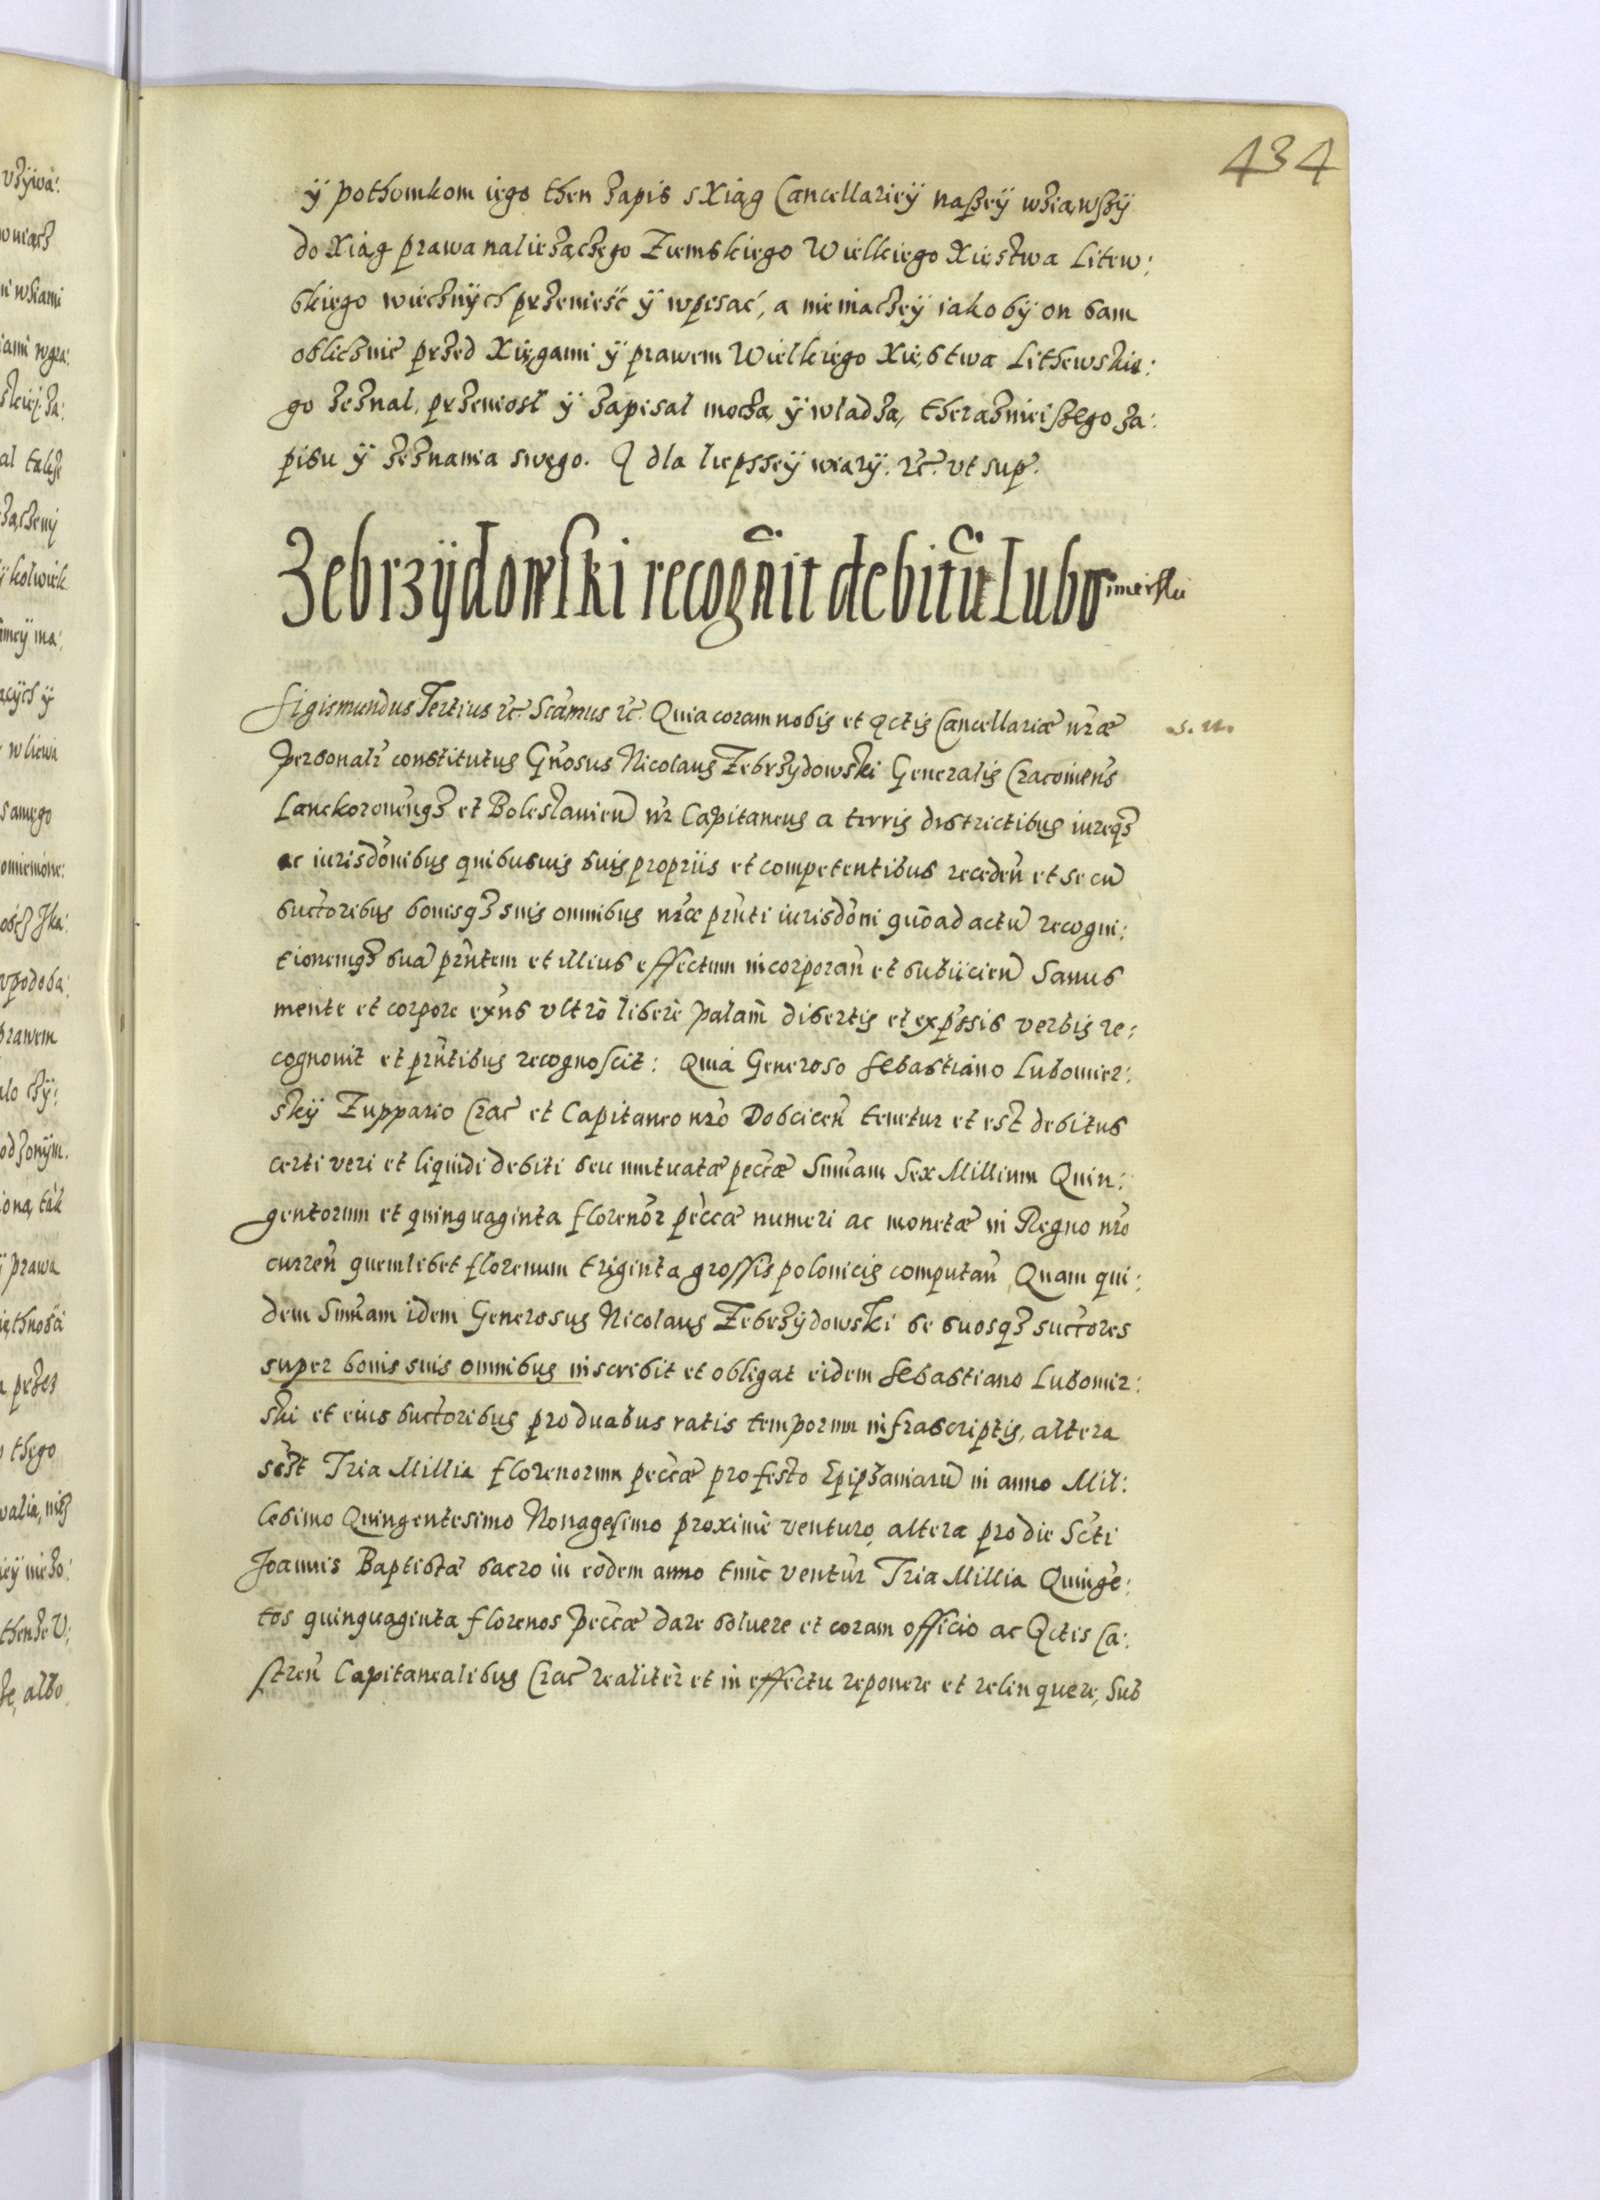 434
ÿ pothomkom iego then zapis s Xiąg Cancellarieÿ naszeÿ wziąwszÿ
do Xiąg prawa nalieżączego Ziemskiego Wielkiego Xięstwa Litew:
skiego wiecznÿch przenieść ÿ wpisać, a nie inaczeÿ iako bÿ on sam
oblicznie przed Xięgami ÿ prawem Wielkiego Xięstwa Lithewskie:
go zeznal, przeniosl ÿ zapisal moczą ÿ wladzą, theraznieiszego za:
pisu ÿ zeznania swego. A dla liepsseÿ wiarÿ. rc̃. vt sup̃.
Zebrzÿdowski recogñit debitũ Lubomirski
Sigismundus Tertius rc̃. Sc̃amus rc̃. Quia coram nobis et Actis Cancellariæ nr̃æ
s. n.
personalr̃ constitutus Gñosus Nicolaus Zebrzÿdowski Generalis Cracovieñs
Lanckoroneñsqз et Boleslavieñ nr̃ Capitaneus a terris districtibus iureqз
ac iurisdõnibus quibusuis suis propriis et competentibus recedeñ et se cũ
suc̃toribus bonisqз suis omnibus nr̃æ pr̃nti iurisdõni quõad actũ recogni:
tionemqз suã pr̃ntem et illius effectum incorporañ et subiicieñ Sanus
mente et corpore exñs vltrò liberè palàm disertis et exp̃ssis verbis re:
cognovit et pr̃ntibus recognoscit: Quià Generoso Sebastiano Lubomier:
skÿ Zuppario Crac̃ et Capitaneo nr̃o Dobciceñ tenetur et est debitus
certi veri et liquidi debiti seu mutuatæ pec̃c̃æ Sum̃am Sex Millium Quin:
gentorum et quinquaginta florenor̃ pec̃c̃æ numeri ac monetæ in Regno nr̃o
curreñ quemlibet florenum triginta grossis polonicis computañ Quam qui:
dem Sum̃am idem Generosus Nicolaus Zebrzÿdowski se suosqз suc̃tores
super bonis suis omnibus inscribit et obligat eidem Sebastiano Lubomir:
ski et eius suc̃toribus pro duabus ratis temporum infrascriptis, altera
vіdelt Tria Millia florenorum pec̃c̃æ pro festo Epiphaniarũ in anno Mil:
lesimo Quingentesimo Nonagesimo proximè venturo, altera pro die Sc̃ti
Joannis Baptistæ sacro in eodem anno tunc̃ ventur̃ Tria Millia Quingẽ:
tos quinquaginta florenos pec̃c̃æ dare soluere et coram officio ac Actis Ca:
streñ Capitanealibus Crac̃ realitèr et in effectu reponere et relinquere, sub